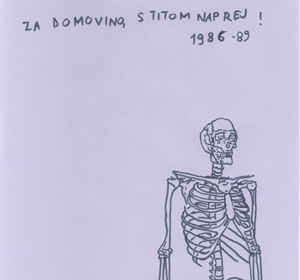 ZA DOMOVINO, S TITOM NAPREJ !
1986-89